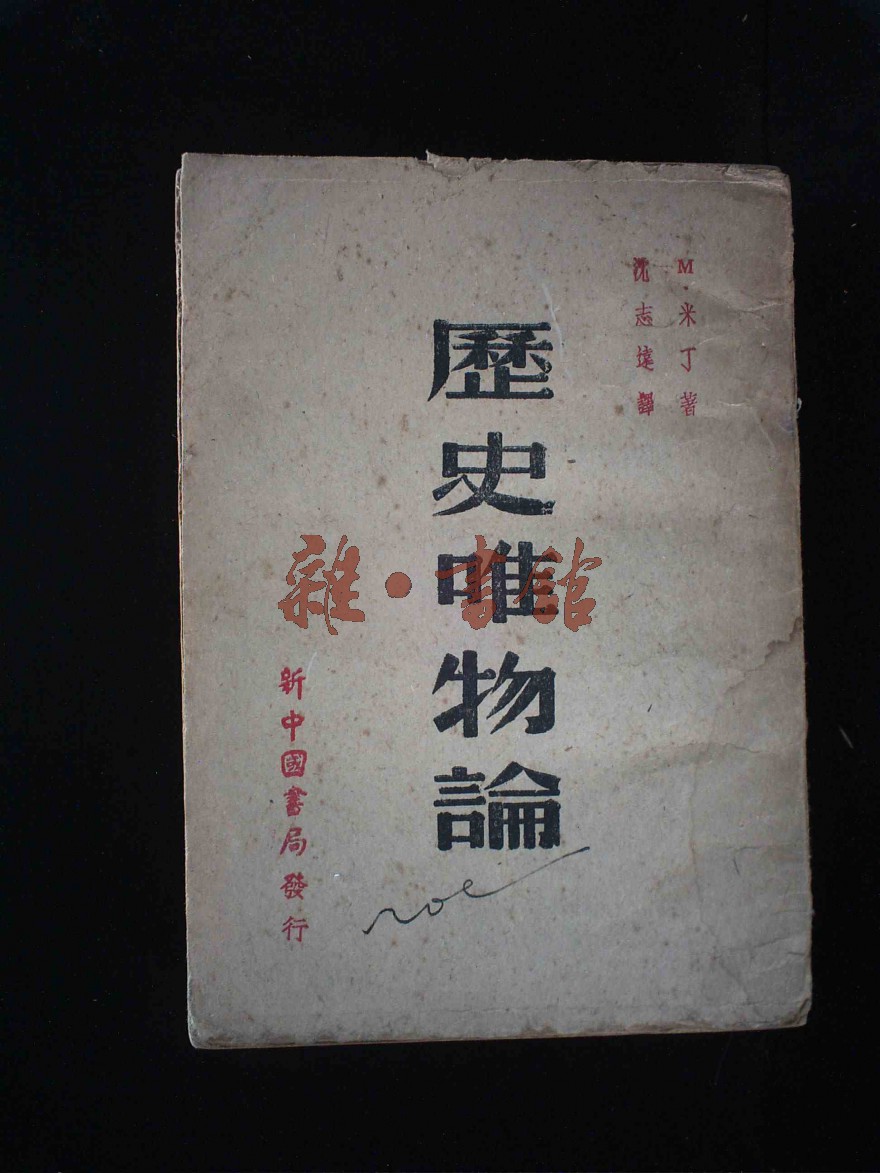 M·米丁著
沈志遠譯
歷史唯物論
雜·書館
新中國書局發行